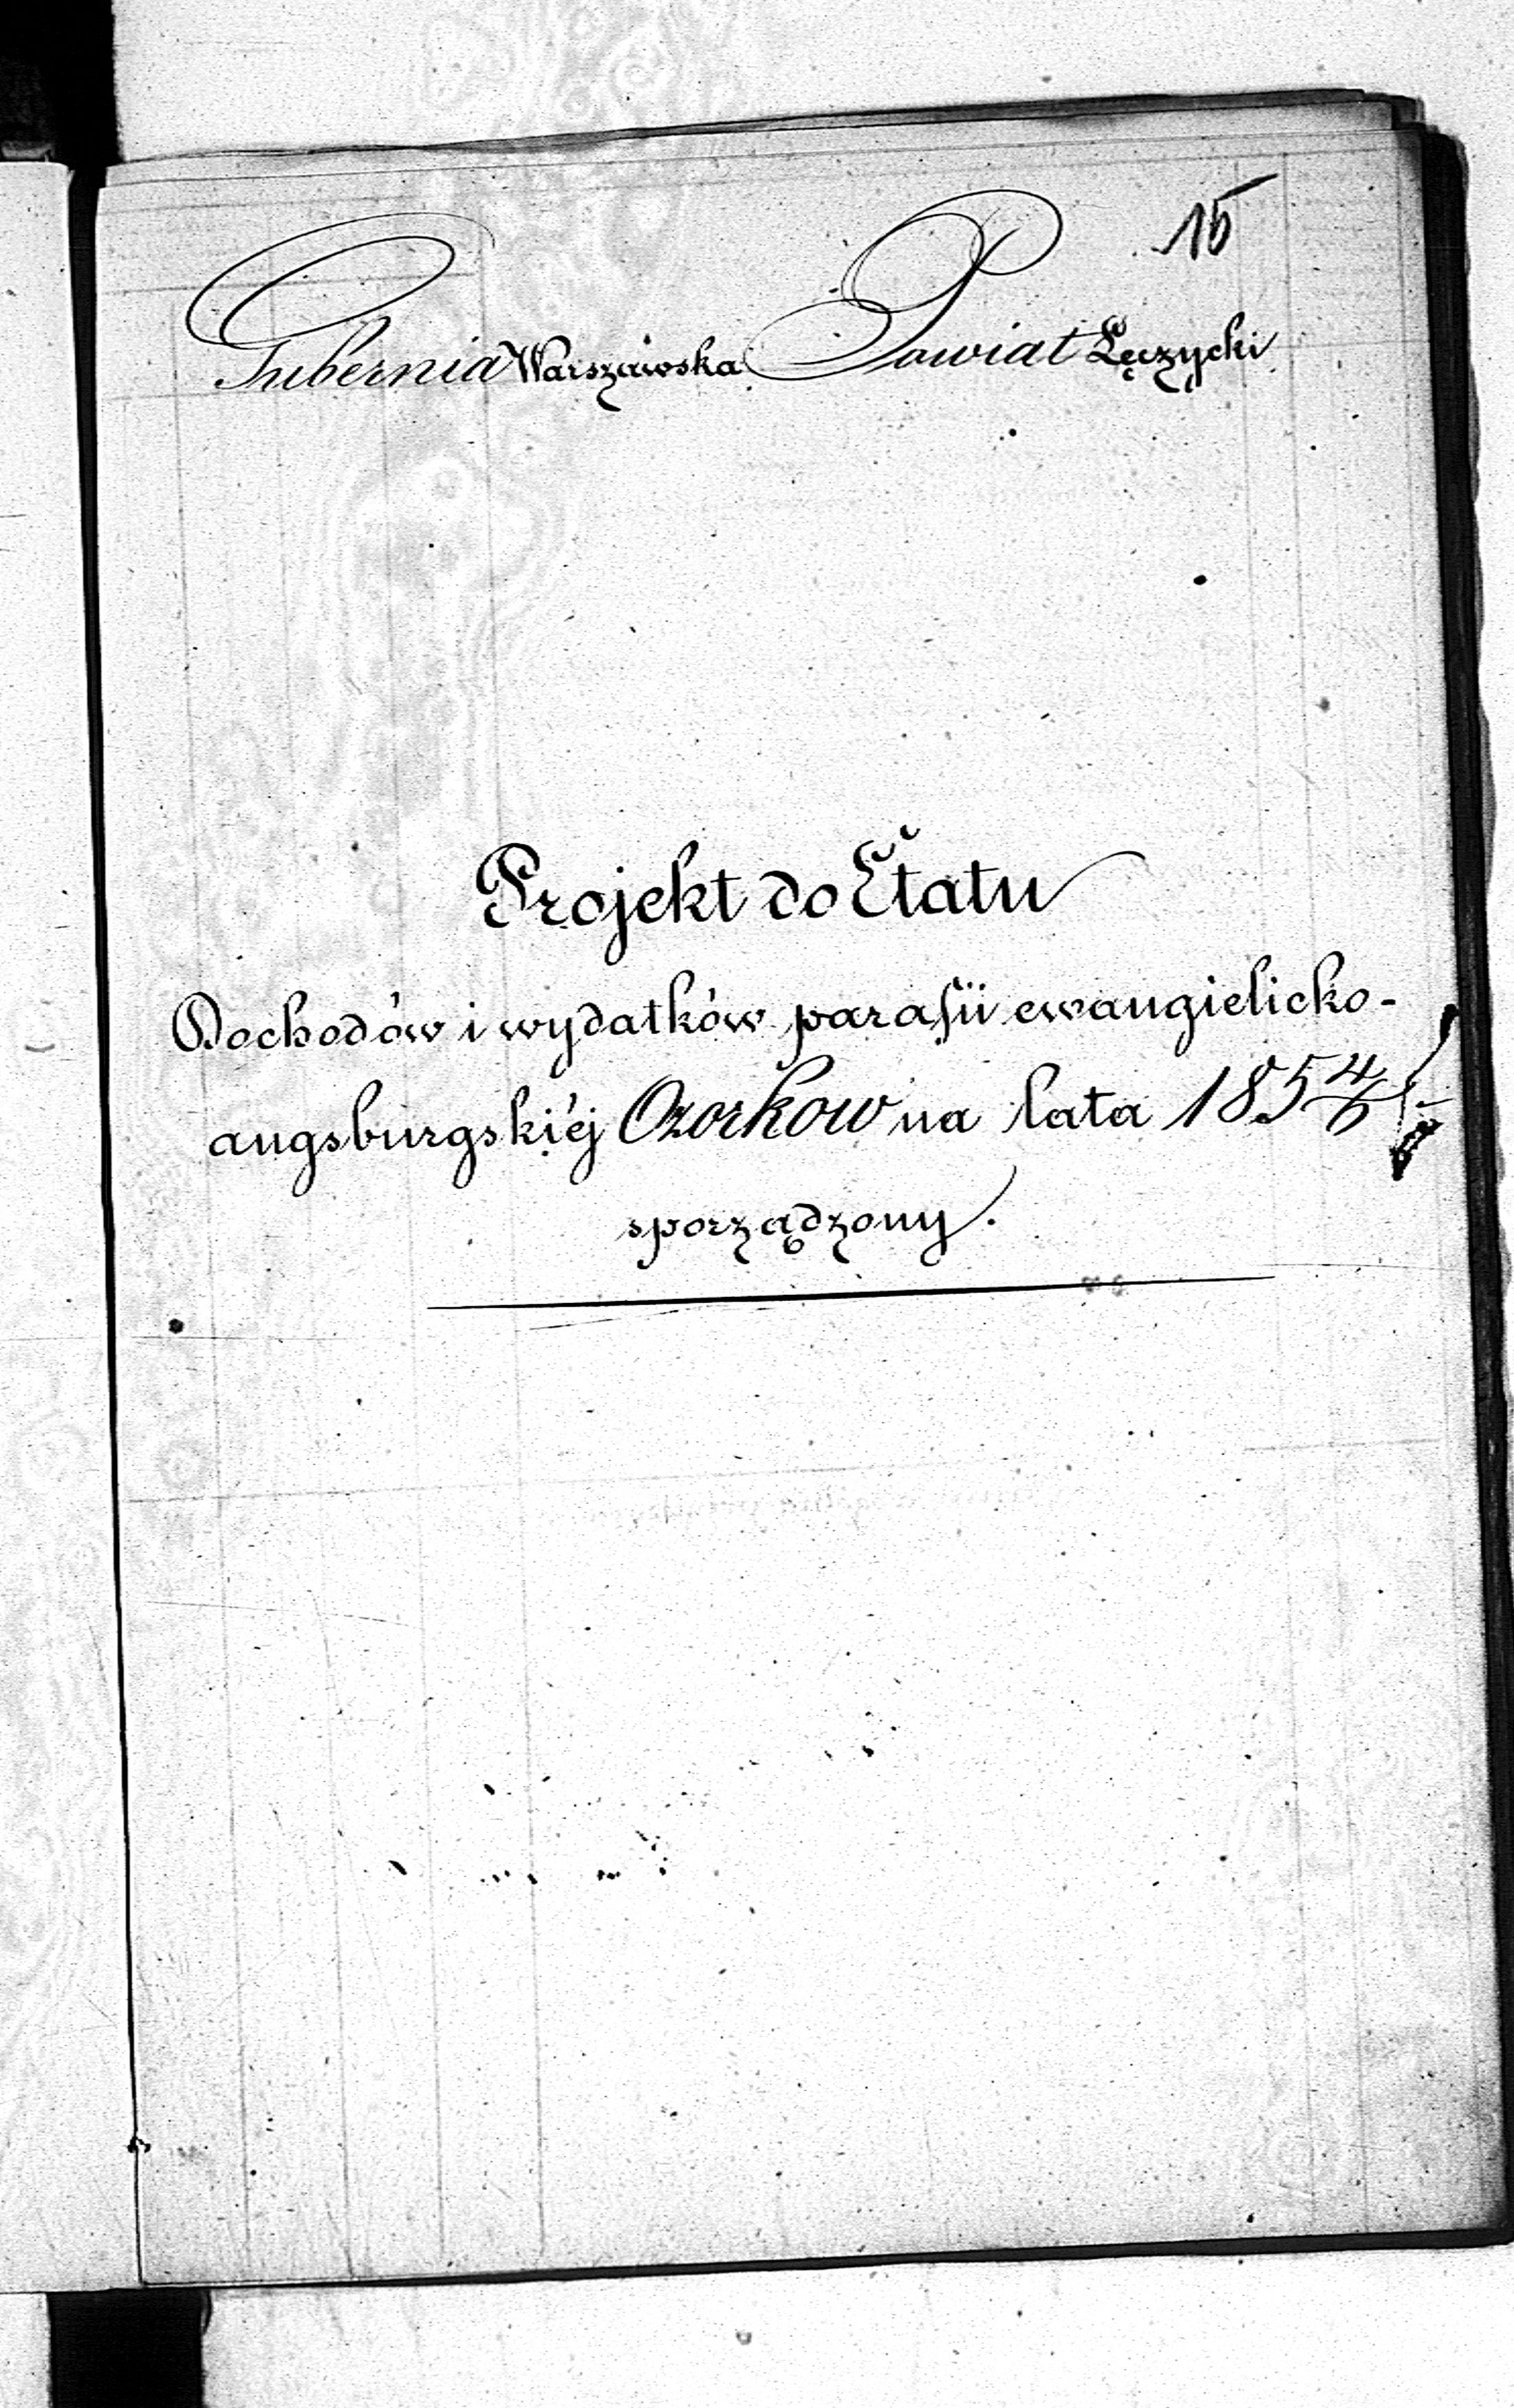 15
Gubernia Warszawska Powiat Łęczycki
Projekt do Etatu
Dochodów i wydatków parafii ewangielicko-
augsburgskiéj Ozorkow na lata 1854/6
sporządzony.